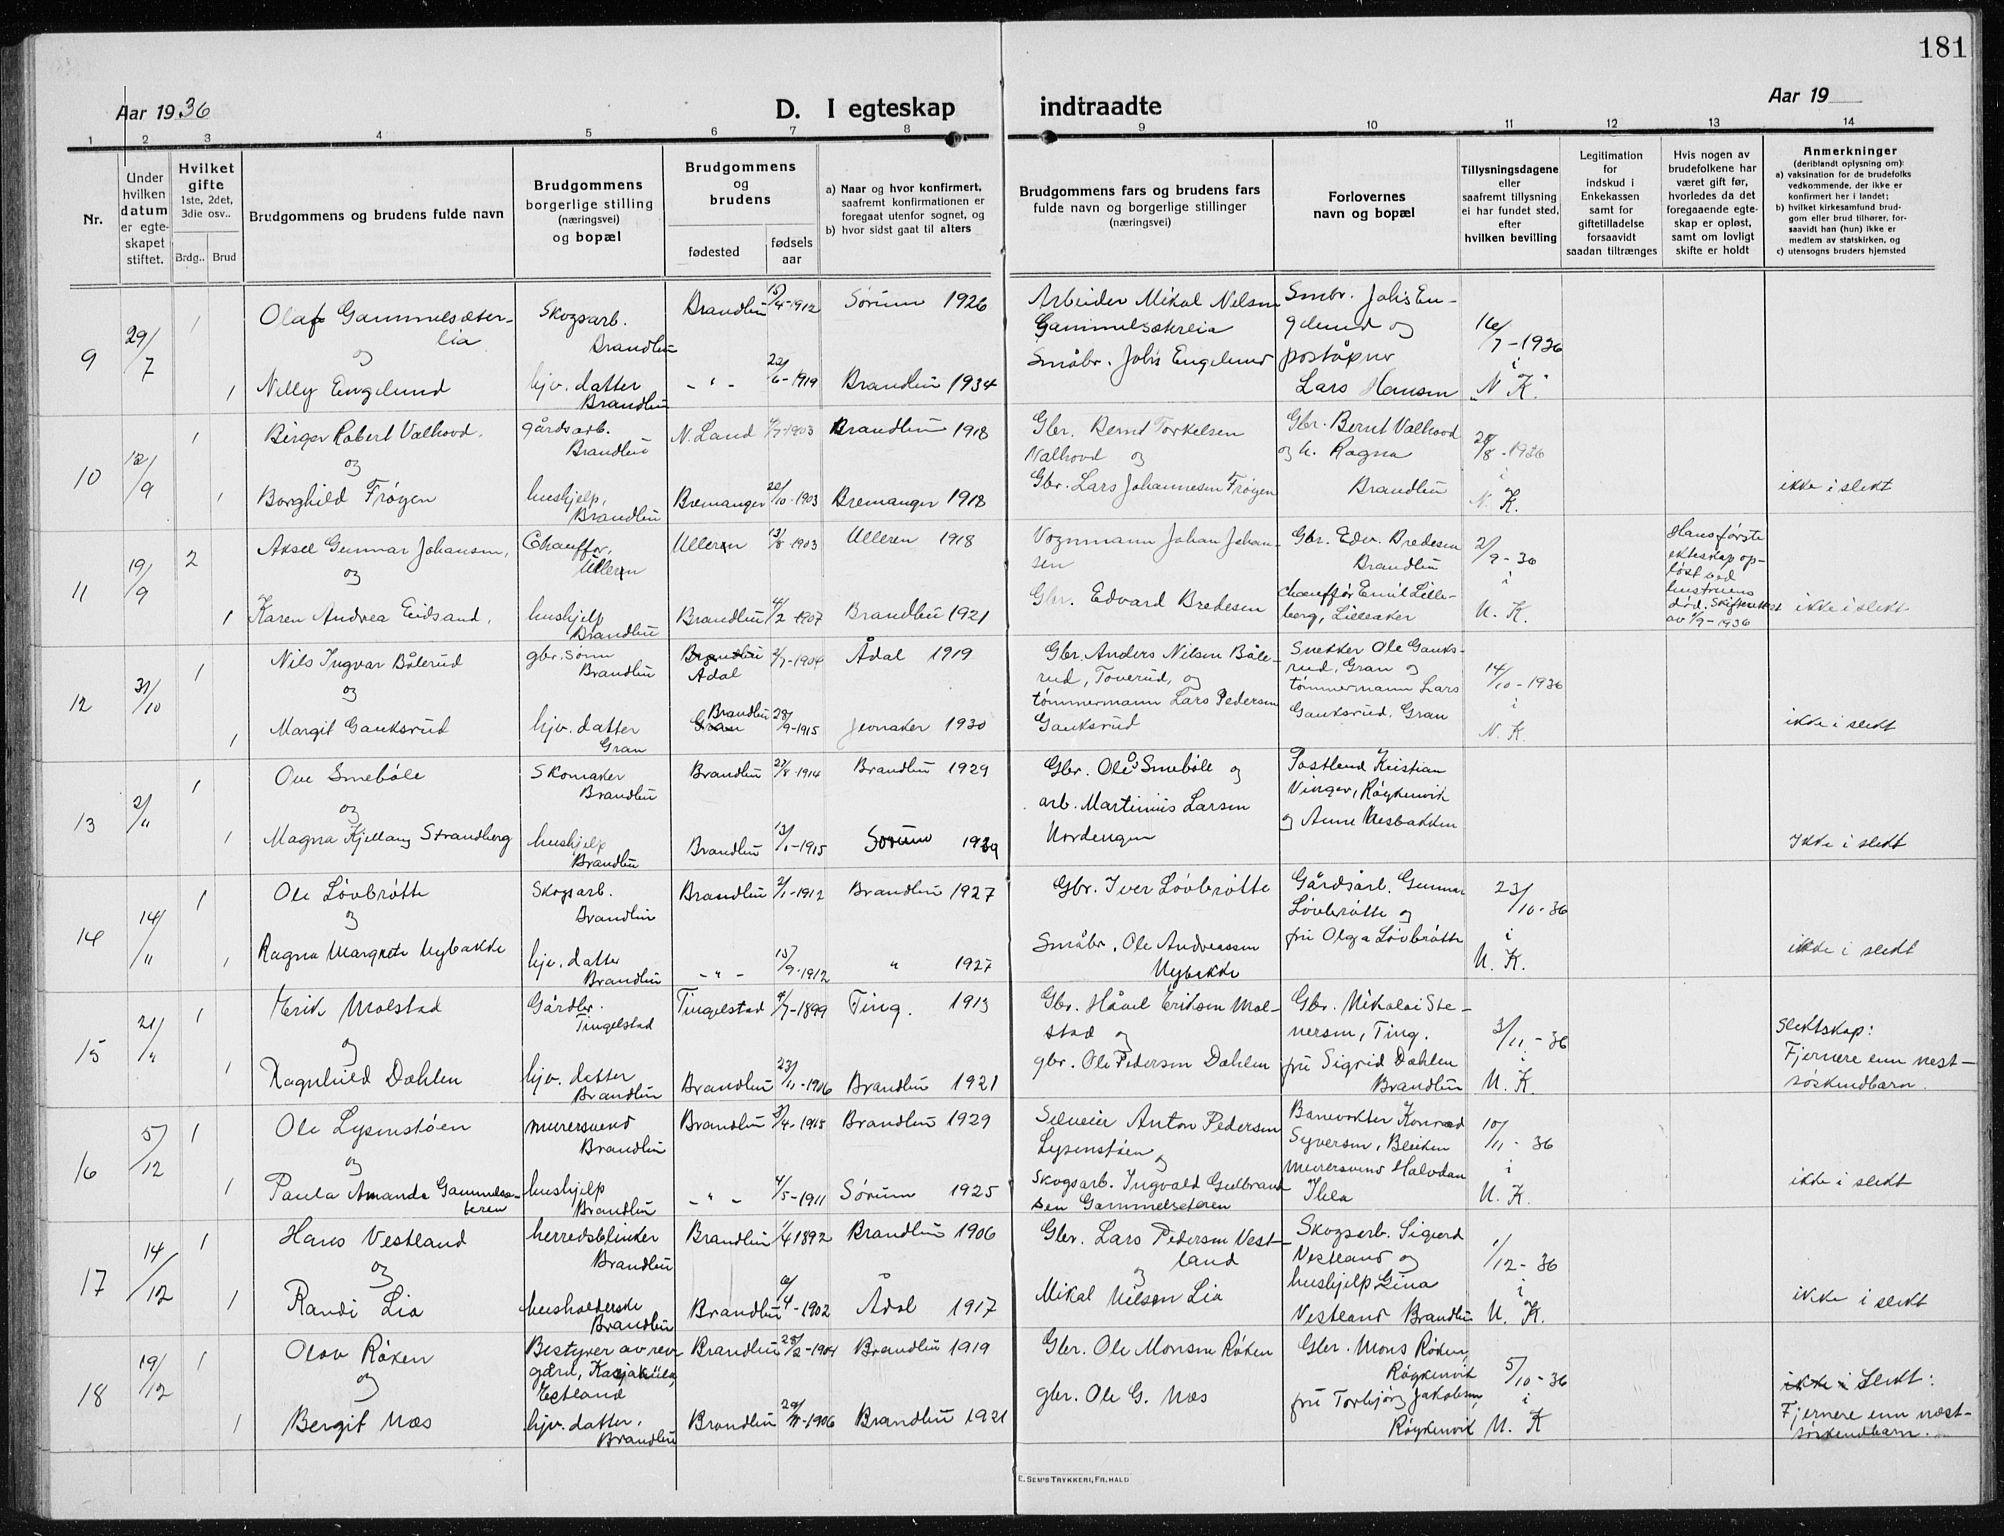 181
Aar 1936
D. I egteskap indtraadte
Aar 19
1 2 3 4 5 6 7 8 9 10 11 12 13 14
Nr.
Under hvilken datum er egteskapet stiftet.
Hvilket gifte
1ste, 2det, 3die osv..
Brdg.. Brud
Brudgommens og brudens fulde navn
Brudgommens borgerlige stilling (næringsvei) og bopæl
Brudgommens og brudens
fødested
fødsels aar
a) Naar og hvor konfirmert, saafremt konfirmationen er foregaat utenfor sognet, og
b) hvor sidst gaat til alters
Brudgommens fars og brudens fars fulde navn og borgerlige stillinger (næringsvei)
Forlovernes navn og bopæl
Tillysningsdagene eller saafremt tillysning ei har fundet sted, efter hvilken bevilling
Legitimation for indskud i Enkekassen samt for giftetilladelse forsaavidt saadan tiltrænges
Hvis nogen av brudefolkene har været gift før, hvorledes da det foregaaende egteskap er opløst, samt om lovlig skifte er holdt
Anmerkninger (deriblandt oplysning om):
a) vaksination for de brudefolks vedkommende, der ikke er konfirmert her i landet;
b) hvilket kirkesamfund brudgom eller brud tilhører, forsaavidt han (hun) ikke er medlem av statskirken, og
c) utensogns bruders hjemsted
9 29/7 1 Olaf Gammelsæterlia Skogsarb. Brandbu Brandbu 15/4-1912 Sørum 1926 Arbeider Mikal Nilsen Gammelsæterlia Smbr. Johs Engelund og 16/7-1936
og
1 Nelly Engelund hjv. datter Brandbu -"- 22/6-1919 Brandbu 1934 Småbr. Johs Engelund poståpner Lars Hansen i N. K.
10 12/9 1 Birger Robert Valhovd. gårdsarb. Brandbu N. Land 1903 Brandbu 1918 Gbr. Bernt Torkelsen Valhovd og Gbr. Bernt Valhovd og h. Ragna 28/8-1936
og
1 Borghild Frøyen hushjelp, Brandbu Bremanger 20/10-1903 Bremanger 1918 Gbr. Lars Johannesen Frøyen Brandbu i N. K. ikke i slekt
11 19/9 2 Aksel Gunnar Johansen, Chauffør, Ulleren Ulleren 13/8-1903 Ulleren 1918 Vognmann Johan Johansen Gbr. Edv. Bredesen Brandbu 2/9-36 Hans første ekteskap opløst ved hustruens død. Skifteattest av 1/9-1936
og
1 Karen Andrea Eidsand, hushjelp Brandbu Brandbu 4/2-1907 Brandbu 1921 Gbr. Edvard Bredesen Chauffør Emil Lilleberg, Lilleaker i N. K. ikke i slekt
12 31/10 1 Nils Ingvar Bålerud gbr. sønn Brandbu Brandbu Ådal 2/7-1904 Ådal 1919 Gbr. Anders Nilsen Bålerud, Toverud, og Snekker Ole Gauksrud, Gran og 14/10-1936
og
1 Margit Gauksrud hjv. datter Gran Gran Brandbu 28/9-1915 Jevnaker 1930 tømmermann Lars Pedersen Gauksrud tømmermann Lars Gauksrud, Gran i N. K. ikke i slekt
13 2/11 1 Ove Smebøle Skomaker Brandbu Brandbu 21/8-1914 Brandbu 1929 Gbr. Ole Smebøle og Postbud Kristian Vinger, Røykenvik
og
1 Magna Kjellaug Strandberg hushjelp Brandbu Brandbu 13/1-1915 Sørum 1929 arb. Martinius Larsen Nordengen og Anne Nesbakken Ikke i slekt
14 14/11 1 Ole Løvbrøtte Skogsarb. Brandbu Brandbu 2/1-1912 Brandbu 1927 Gbr. Iver Løvbrøtte Gårdsarb. Gunnar Løvbrøtte og 23/10-36
og
1 Ragna Margrete Nybakke hjv. datter Brandbu -"- 15/9-1912 " 1927 Småbr. Ole Andreassen Nybakke fru Olga Løvbrøtte i N. K. ikke i slekt
15 21/11 1 Erik Molstad Gårdbr. Tingelstad Tingelstad 9/7-1899 Ting. 1913 Gbr. Håvel Eriksen Molstad og Gbr. Nikolai Stenersen, Ting. 3/11-36 Slektskap:
og
1 Ragnhild Dæhlen hjv. datter Brandbu Brandbu 23/11-1906 Brandbu 1921 gbr. Ole Pedersen Dæhlen fru Sigrid Dæhlen Brandbu i N. K. Fjernere enn nestsøskendbarn.
16 5/12 1 Ole Lysenstøen murersvend Brandbu Brandbu 3/4-1915 Brandbu 1929 Anton Pedersen Lysenstøen og Banevokter Konrad Syversen, Bleiken 10/11-36
og
1 Paula Amanda Gammelsæteren hushjelp Brandbu -"- 4/5-1911 Sørum 1925 Skogsarb. Ingvald Gulbrandsen Gammelseteren murersvend Halvdan Thea i N. K. ikke i slekt
17 14/12 1 Hans Vestland herredsblinker Brandbu Brandbu 1/4 1892 Brandbu 1906 Gbr. Lars Pedersen Vestland og Skogsarb. Sigurd Vestland og 1/12-36
og
1 Randi Lia husholderske Brandbu Brandbu 10/4-1902 Ådal 1917 Mikal Nilsen Lia hushjelp Gina Vestland Brandbu i N. K. ikke i slekt
18 19/12 1 Olav Røken Bestyrer av revgård, Estland Brandbu 28/2-1904 Brandbu 1919 Gbr. Ole Monsen Røken Gbr. Mons Røken, Røykenvik 5/10-36 ikke i Slekt:
og
1 Bergit Næs hjv. datter, Brandbu Brandbu 29/11-1906 Brandbu 1921 gbr. Ole G. Næs fru Torbjørg Jakobsen, Røykenvik i N. K Fjernere enn næstsøskendbarn.
E. SEM'S TRYKKERI, FR.HALD